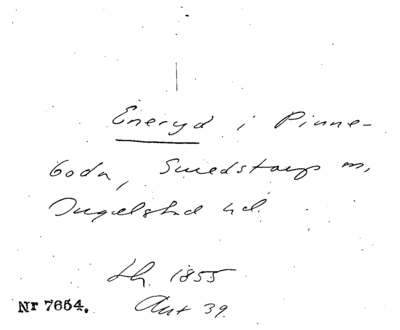 Eneryd i Pinne-
boda, Smedstorps sn,
Ingelstad hd.
Lh. 1855
Ant 39.
Nr 7654.